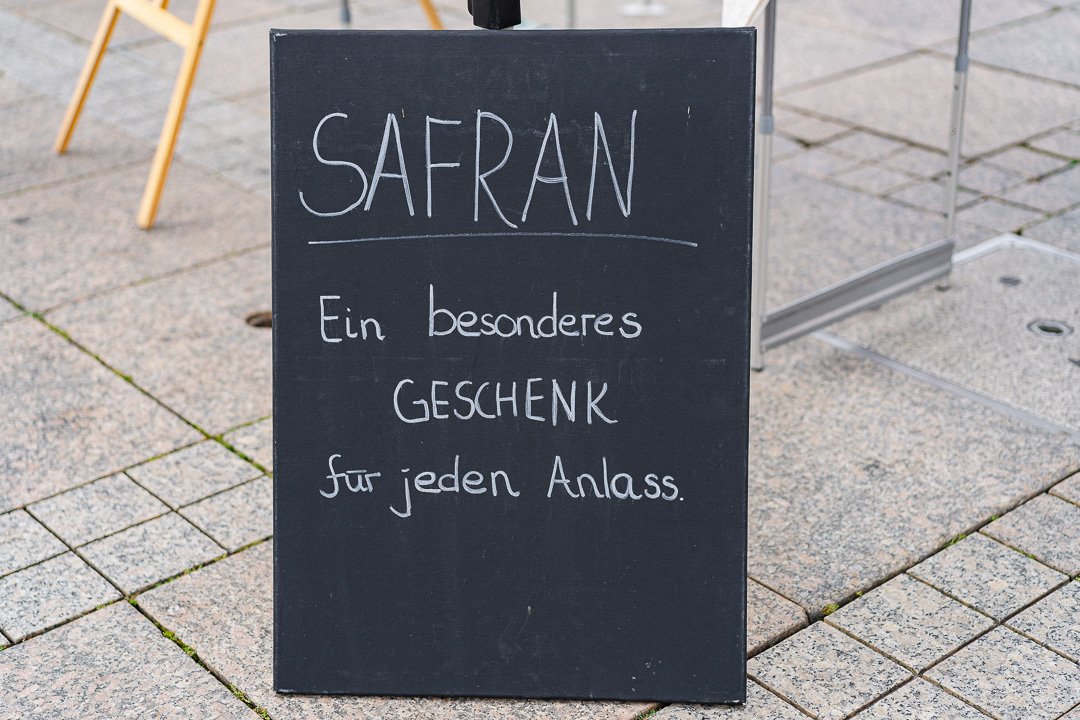 SAFRAN
Ein besonderes
GESCHENK
für jeden Anlass.